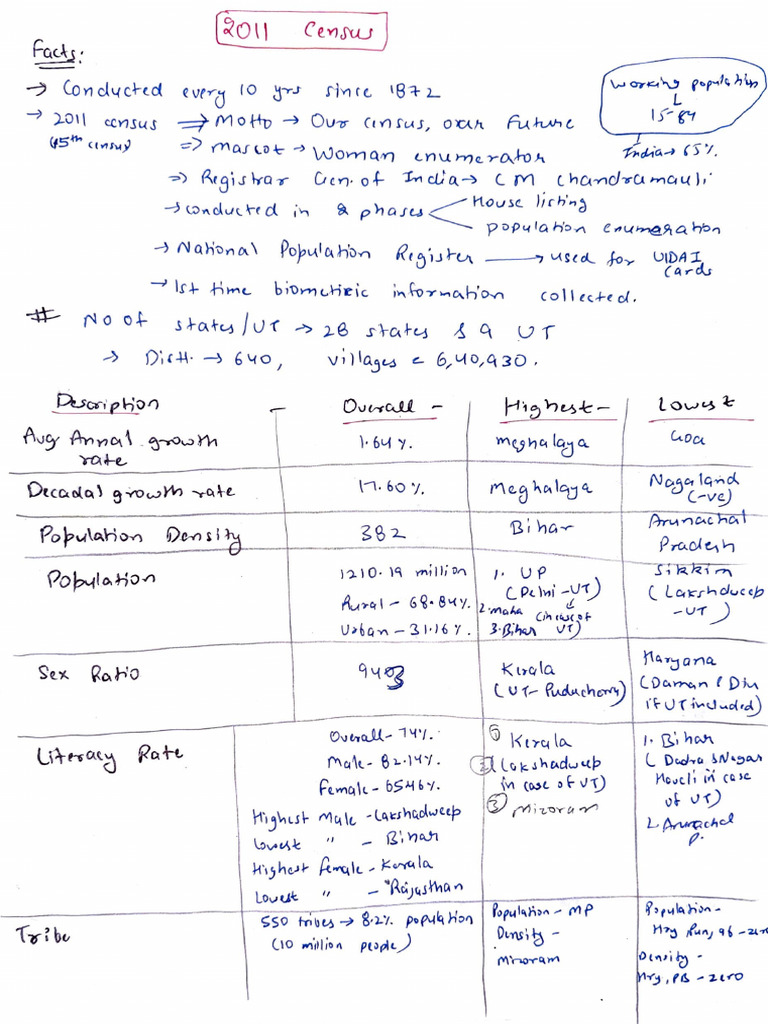 2011 Census
Facts:
→ Conducted every 10 yrs since 1872
Working population
15-64
India → 65%
→ 2011 census ⇒ Motto → Our census, our future
(15th census) ⇒ Mascot → Woman enumerator
⇒ Registrar Gen. of India → CM Chandramauli
→ conducted in 2 phases
House listing
population enumeration
→ National Population Register → used for UIDAI
cards
→ 1st time biometric information collected.
# No of states/UT → 28 states & 9 UT
→ Distt. → 640, villages = 6,40,930.
Description - Overall - Highest - Lowest
Avg Annal growth 1.64% Meghalaya Goa
rate
Decadal growth rate 17.60% Meghalaya Nagaland
(-ve)
Population Density 382 Bihar Arunachal
Pradesh
Population 1210.19 million 1. UP Sikkim
(Delhi - UT) (Lakshdweep
Rural - 68.84% 2. Maha - UT)
Urban - 31.16% 3. Bihar (in case of
UT)
Sex Ratio 943 Kerala Haryana
(UT - Puducherry) (Daman & Diu
if UT included)
Literacy Rate Overall - 74% ① Kerala 1. Bihar
Male - 82.14% ② (Lakshadweep (Dadra & Nagar
Female - 65.46% in case of UT) Haveli in case
of UT)
Highest Male - Lakshadweep ③ Mizoram 2. Arunachal
P.
Lowest " - Bihar
Highest female - Kerala
Lowest " - Rajasthan
Tribe 550 tribes → 8.2% population Population - MP Population -
(10 million people) Density - Hry, Punjab - zero
Mizoram Density -
Hry, PB - zero